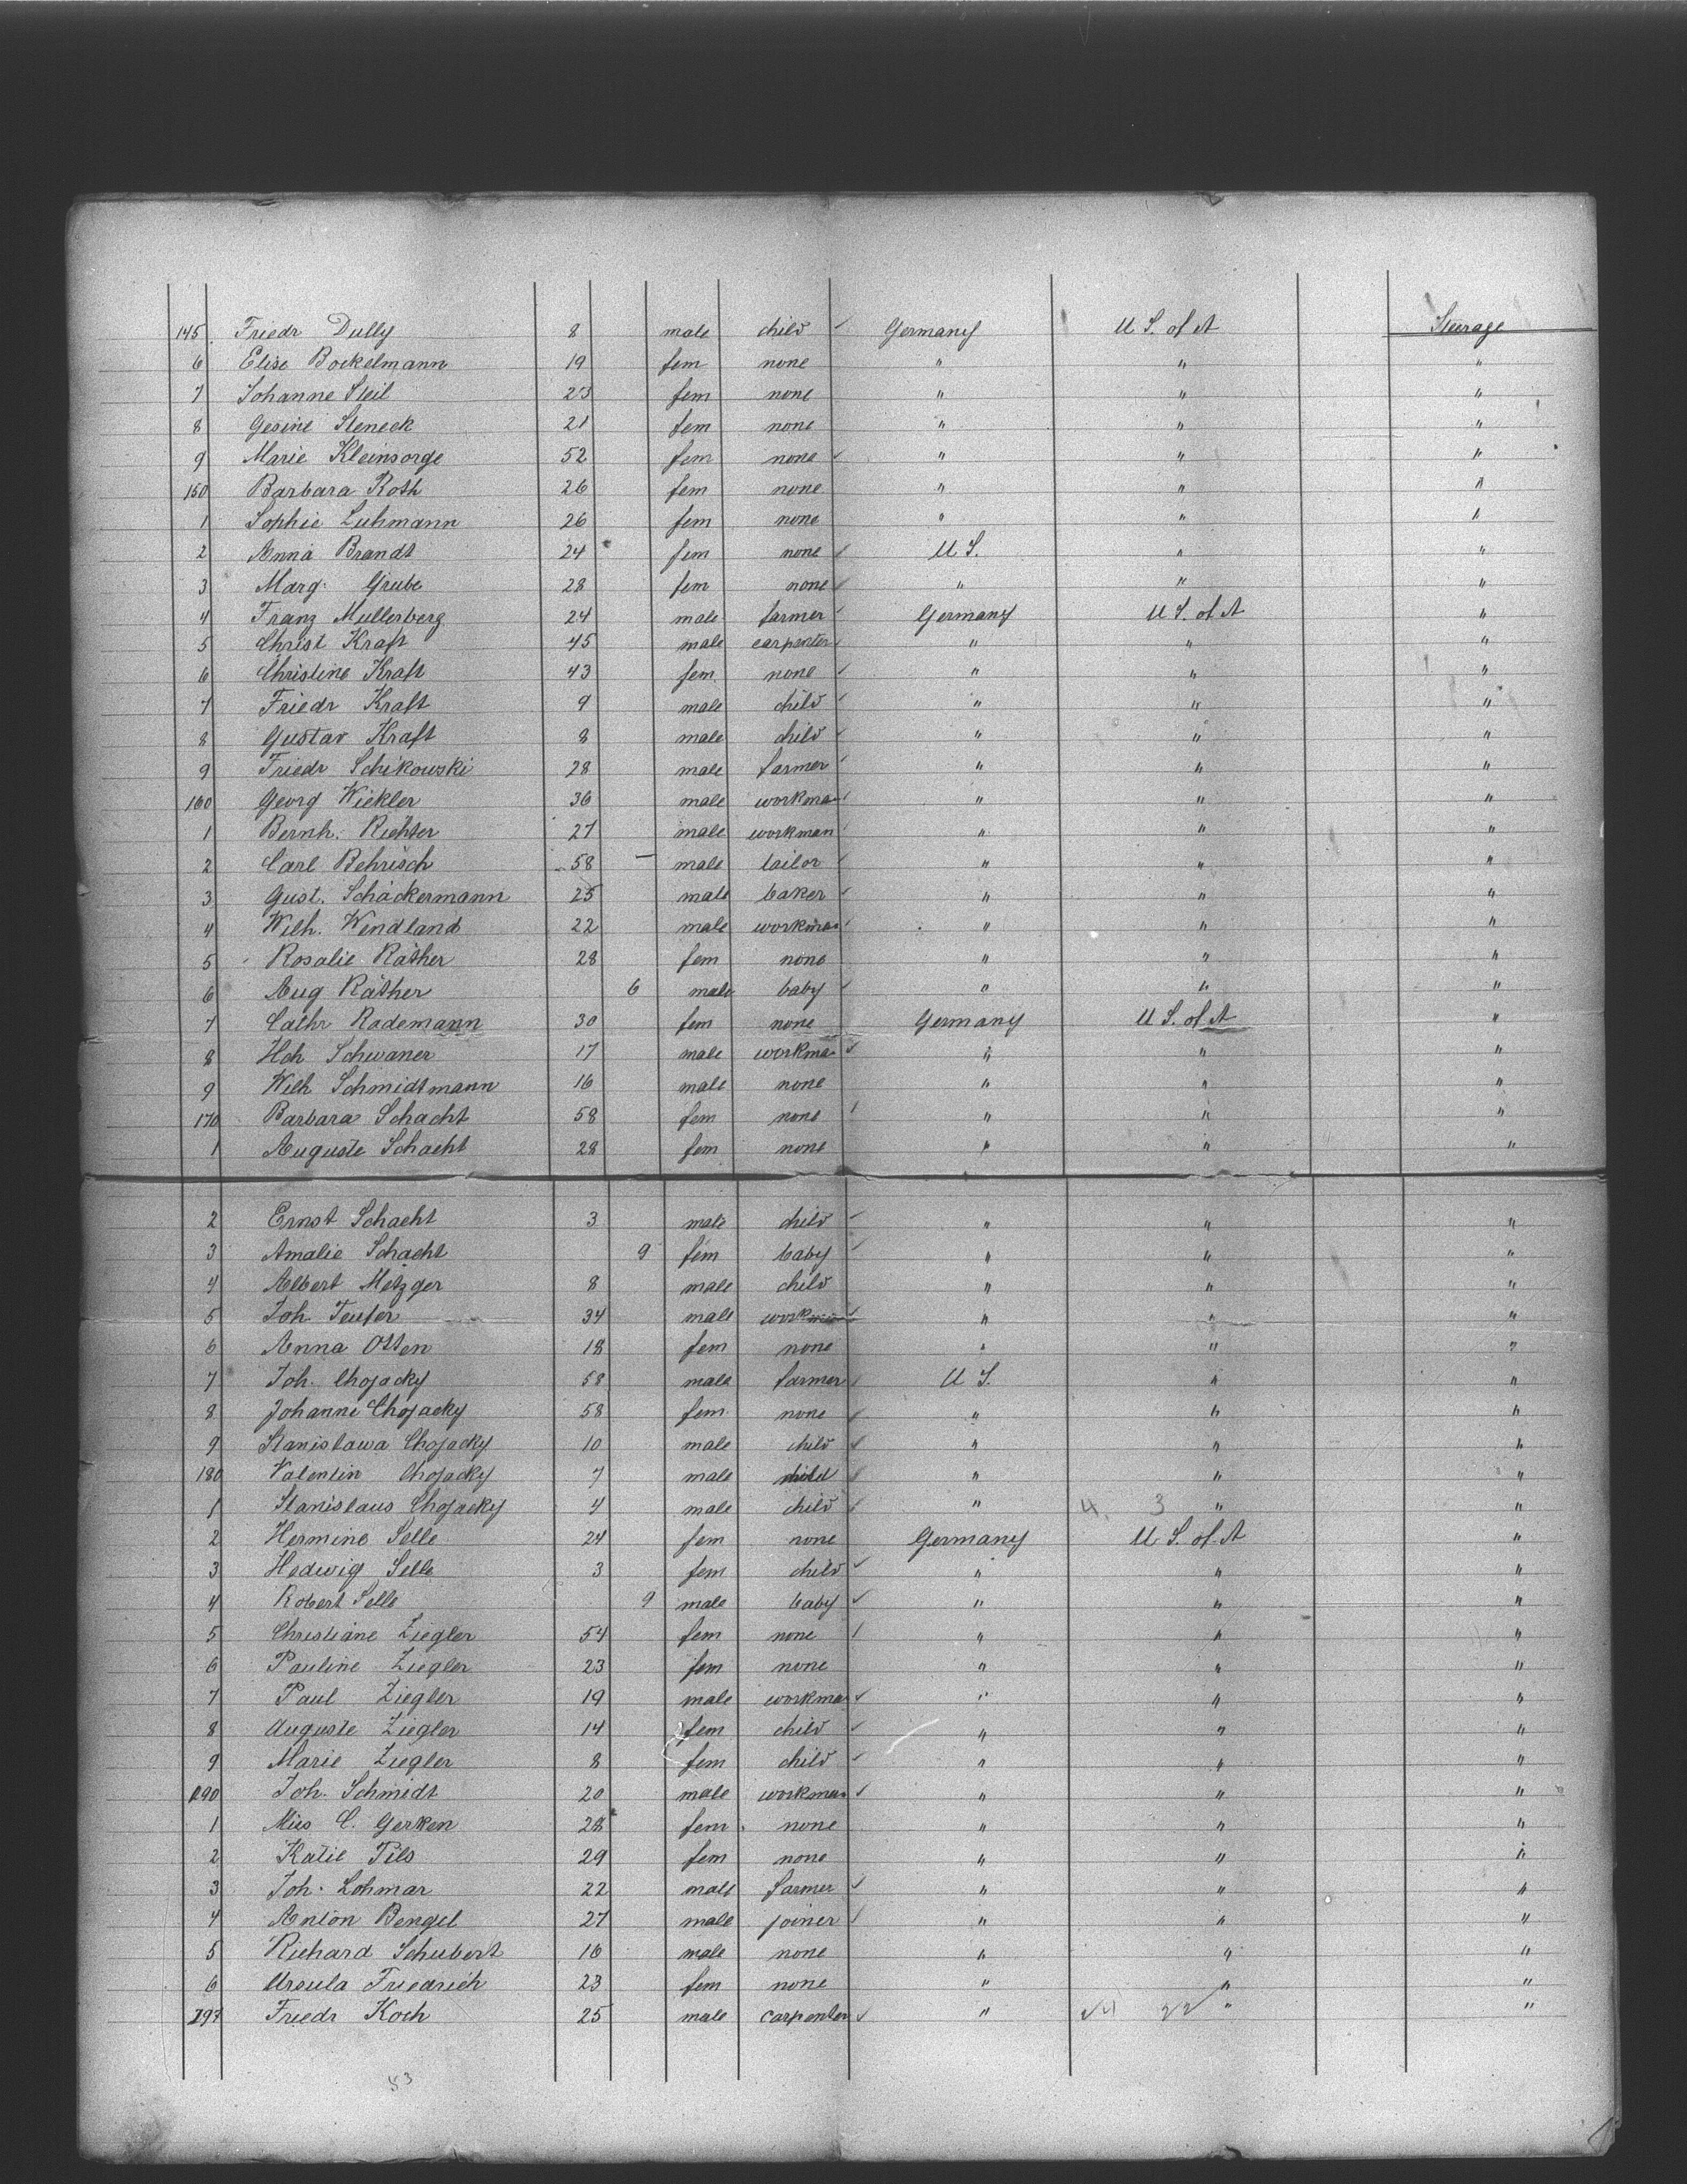 145 Friedr Dully 8 male child Germany U S. of A Steerage
6 Elise Bockelmann 19 fem none " " "
7 Johanne Steil 23 fem none " " "
8 Gesine Steneck 21 fem none " " "
9 Marie Kleinsorge 52 fem none " " "
150 Barbara Roth 26 fem none " " "
1 Sophie Luhmann 26 fem none " " "
2 Anna Brandt 24 fem none U S. " "
3 Marg. Grube 28 fem none " " "
4 Franz Mullerberg 24 male farmer Germany U S. of A "
5 Christ Kraft 45 male carpenter " " "
6 Christine Kraft 43 fem. none " " "
7 Friedr Kraft 9 male child " " "
8 Gustav Kraft 8 male child " " "
9 Friedr Schikowski 28 male farmer " " "
160 Georg Wickler 36 male workman " " "
1 Bernh. Richter 27 male workman " " "
2 Carl Behrisch 58 — male tailor " " "
3 Gust. Schäckermann 25 male baker " " "
4 Wilh. Wendland 22 male workman " " "
5 Rosalie Räther 28 fem none " " "
6 Aug Räther 6 male baby " " "
7 Cathr Rademann 30 fem none Germany U S. of A "
8 Hch Schwaner 17 male workman " " "
9 Wilh Schmidtmann 16 male none " " "
170 Barbara Schacht 58 fem none " " "
1 Auguste Schacht 28 fem none " " "
2 Ernst Schacht 3 male child " " "
3 Amalie Schacht 9 fem baby " " "
4 Albert Metzger 8 male child " " "
5 Joh Teufer 34 male workman " " "
6 Anna Otten 18 fem none " " "
7 Joh. Chojacky 58 male farmer U S. " "
8 Johanne Chojacky 58 fem. none " " "
9 Stanislawa Chojacky 10 male child " " "
180 Valentin Chojacky 7 male child " " "
1 Stanislaus Chojacky 4 male child " 4. 3 " "
2 Hermine Selle 24 fem none Germany U S. of A "
3 Hedwig Selle 3 fem child " " "
4 Robert Selle 9 male baby " " "
5 Christiane Ziegler 54 fem none " " "
6 Pauline Ziegler 23 fem none " " "
7 Paul Ziegler 19 male workman " " "
8 Auguste Ziegler 14 fem child " " "
9 Marie Ziegler 8 fem child " " "
190 Joh. Schmidt 20 male workman " " "
1 Miss C. Gerken 28 fem. none " " "
2 Katie Pils 29 fem none " " "
3 Joh. Lohmar 22 male farmer " " "
4 Anton Bengel 27 male joiner " " "
5 Richard Schubert 16 male none " " "
6 Ursula Friedrich 23 fem none " " "
197 Friedr Koch 25 male carpenter " 22 " "
53